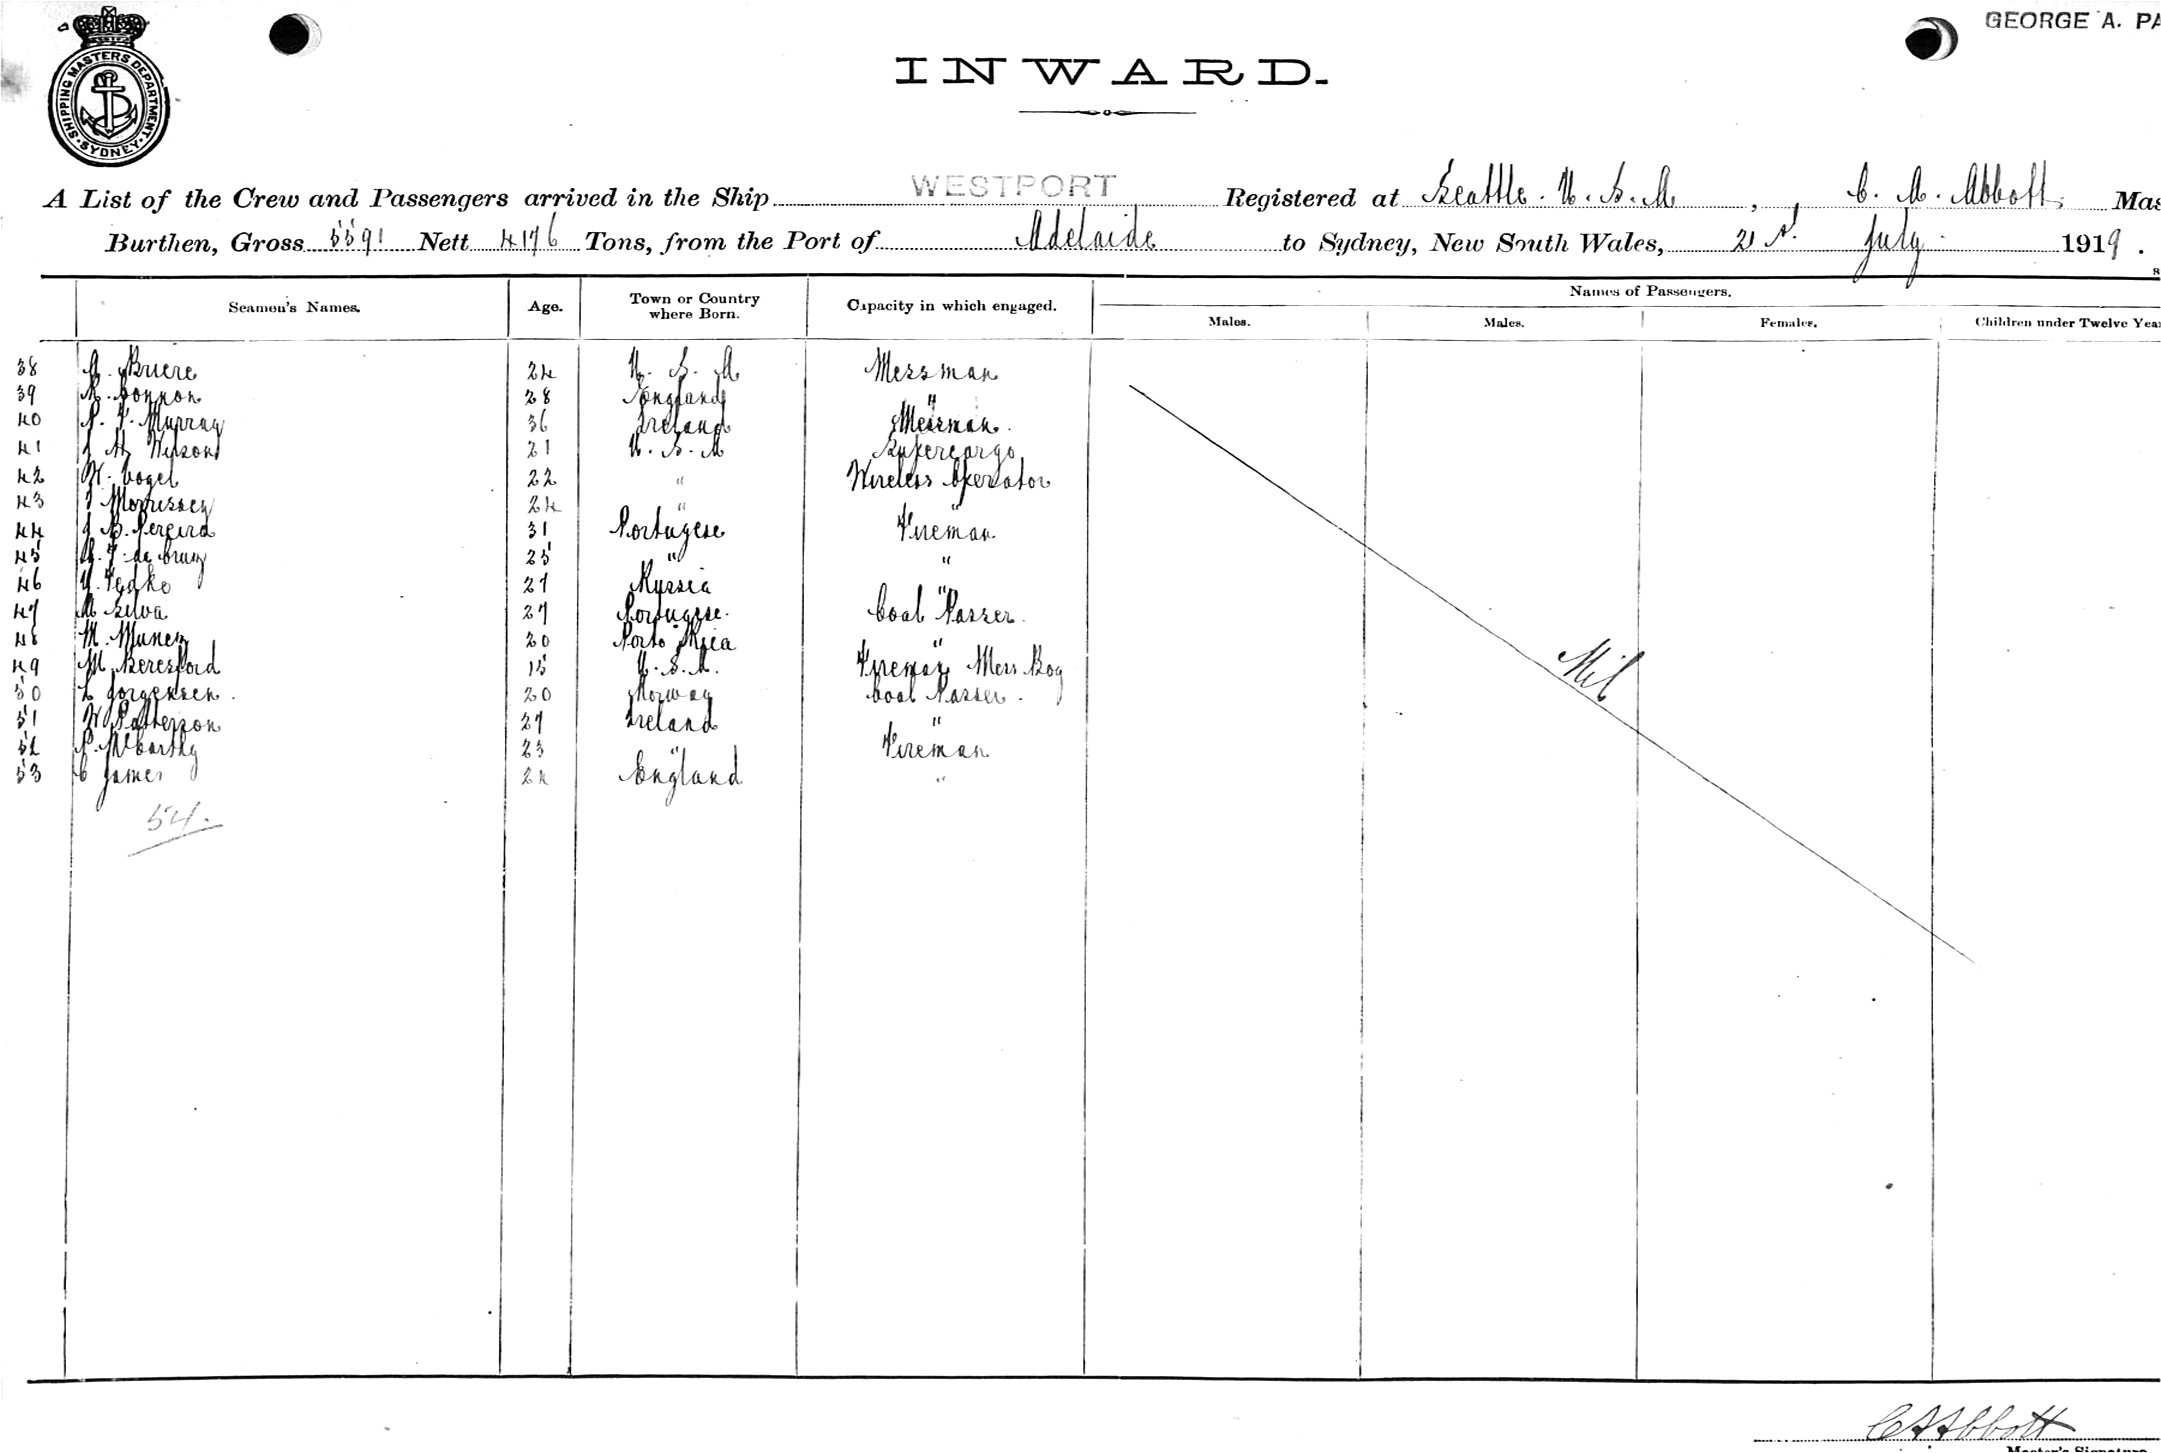 GEORGE A. PA
SHIPPING MASTERS DEPARTMENT
SYDNEY
INWARD.
A List of the Crew and Passengers arrived in the Ship WESTPORT Registered at Seattle. U. S. A , C. A. Abbott. Mas
Burthen, Gross 5591 Nett 4176 Tons, from the Port of Adelaide to Sydney, New South Wales, 21st July 1919.
Seamen's Names. Age. Town or Country where Born. Capacity in which engaged. Names of Passengers.
Males. Males. Females. Children under Twelve Yea
38 A. Briere 24 U. S. A Messman
39 R. Connon 28 England "
40 P. F. Murray 36 Ireland Messman.
41 J H Wilson 21 U. S. A Supercargo
42 W. Vogel 22 " Wireless Operator
43 J Morrissey 24 " "
44 J B. Pereira 31 Portugese Fireman
45 J. de Cruz 25 " "
46 Fedko 27 Russia "
47 A Silva 27 Portugese. Coal Passer.
48 M. Munez 20 Porto Rica "
49 M. Beresford 15 U. S. A. Fireman Mess Boy
50 L Jorgensen. 20 Norway Coal Passer.
51 W Patterson 27 Ireland "
52 P. McCarthy 23 " Fireman
53 C James 24 England "
54.
Nil
C A Abbott
Master's Signature